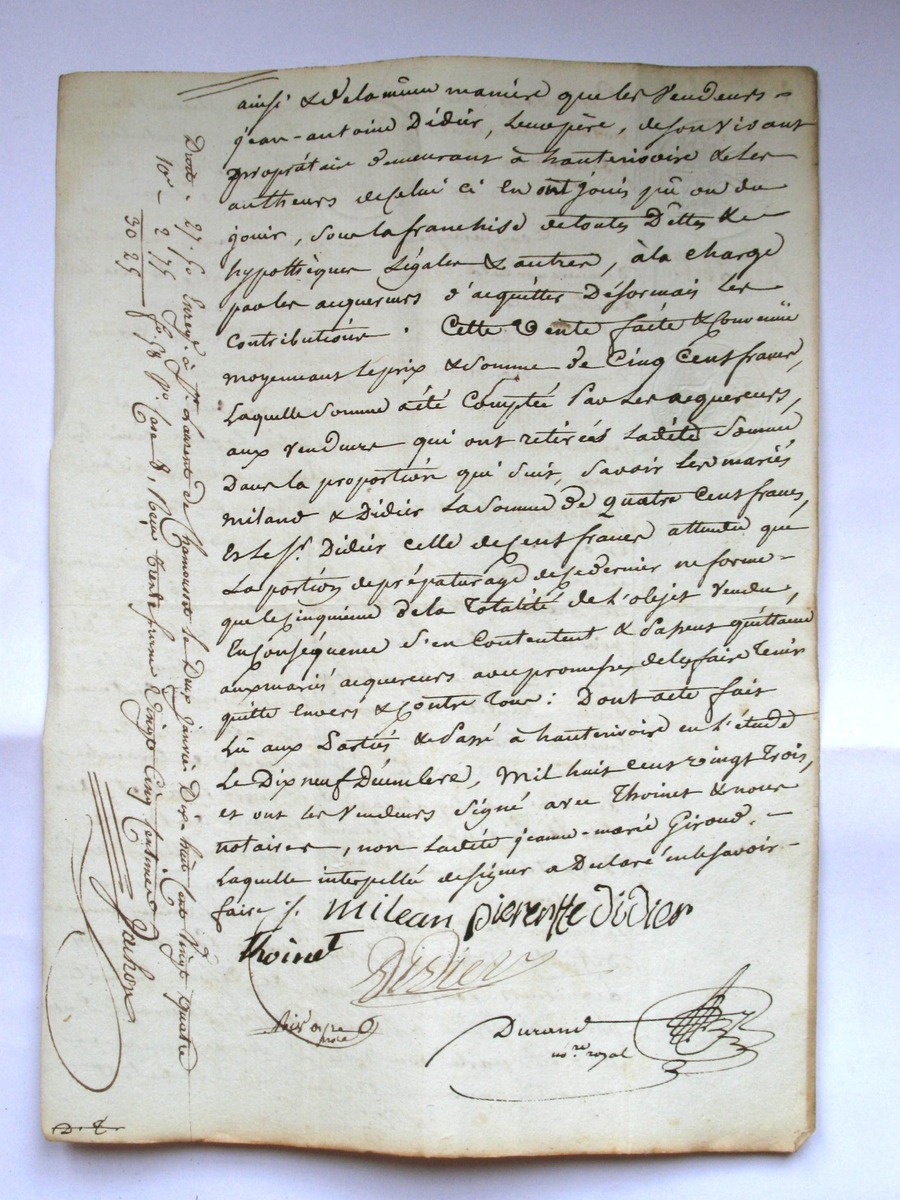 ainsi & de la même manière que les Vendeurs
jean-antoine Didier, Leur père, de son vivant
propriétaire demeurant à hauterivoire & les
autheurs de celui ci en ont joui pû ou du
jouir, sous la franchise de toutes Dettes &
hypothèques Légales & autres, à la charge
par les acquereurs d'acquitter Désormais les
Contributions. Cette Vente faite & Convenue
moyennant le prix & Somme de Cinq Cent francs,
Laquelle Somme a été Comptée Par Les acquereurs,
aux Vendeurs qui ont retirés Ladite Somme
Dans la proportion qui Suit, Savoir Les mariés
miland & Didier La Somme de quatre Cent francs,
Et le Sr. Didier celle de Cent francs attendu que
La portion de prépaturage de ce dernier ne forme
que le Cinquième de la Totalité de L'objet Vendu,
En Conséquence s'en Contentent & Passent quittance
aux mariés acquereurs avec promesse de les faire Tenir
quitte Envers & Contre Tous: Dont acte fait
Lû aux Parties & Passé à hauterivoire en L'étude
Le Dix neuf Décembre, Mil huit cent vingt Trois,
et ont les Vendeurs Signé avec Thoinet & nous
notaires, non Ladite jeanne-marie Giroud,
Laquelle interpellée de signer a Déclaré ne le Savoir
faire /.
milean pierentte didier
thoinet
Didier
Durand
no.re royal
Droits . 27. 50
10e - 2 75
30 25
Enregé. à St. Laurent de Chamousset le Deux janvier Dix-huit Cent Vingt quatre
fo. 98 Vo. Case 8, Reçu trente francs Vingt Cinq Centimes